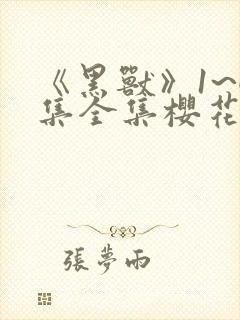 《黑獸》1~
集全集櫻花
張夢雨